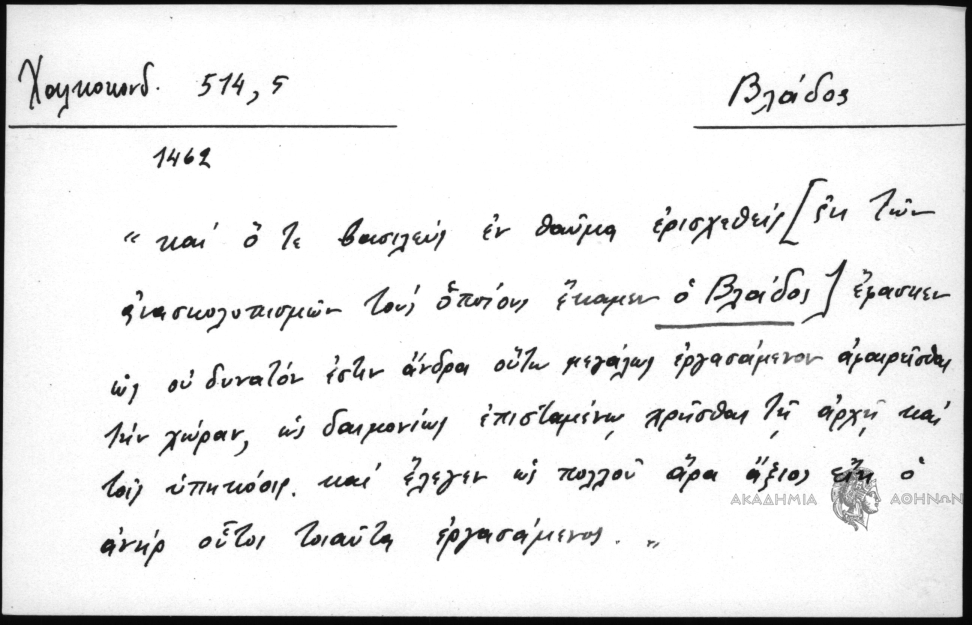 Χαλκοκονδ. 514, 5
Βλάδος
1462
"καί ὅ τε βασιλεύς ἐν θαῦμα ἐνισχεθείς [ἐκ τῶν
ἀνασκολοπισμῶν τούς ὁποίους ἔκαμεν ὁ Βλάδος] ἔφασκεν
ὡς οὐ δυνατόν ἐστιν ἄνδρα οὕτω μεγάλως ἐργασάμενον ἀφαιρεῖσθαι
τήν χώραν, ὡς δαιμονίως ἐπισταμένῳ χρῆσθαι τῇ ἀρχῇ καί
τοῖς ὑπηκόοις. καί ἔλεγεν ὡς πολλοῦ ἄρα ἄξιος εἴη ὁ
ΑΚΑΔΗΜΙΑ ΑΘΗΝΩΝ
ἀνήρ οὗτοι τοιαῦτα ἐργασάμενος. "